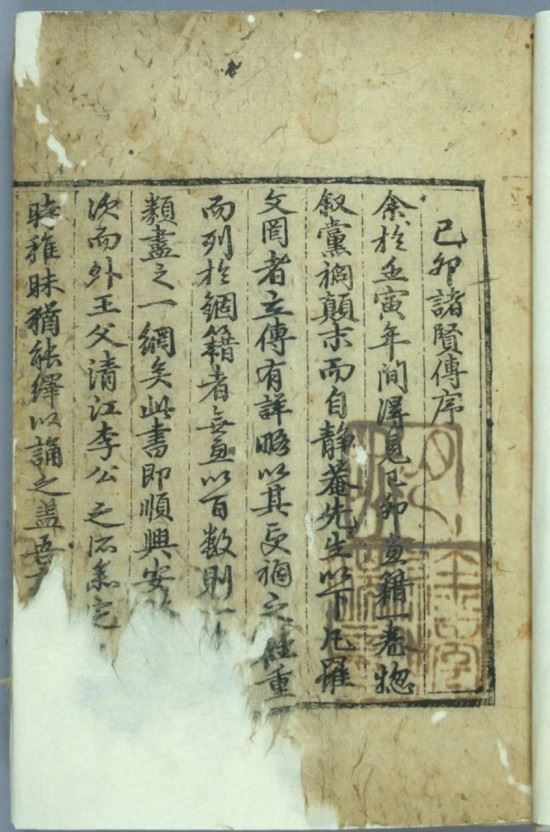 己卯諸賢傳序
余於壬寅年間淂見己卯黨籍一卷惣
叙黨禍顛末而自静菴先生以下凡羅
文罔者立傳有詳略以其受禍之輕重
而列於錮籍者無以百数則一
類盡之一網矣此書即順興安
次而外王父清江李公之所彙定
稚昧猶能繹以誦之盖吾